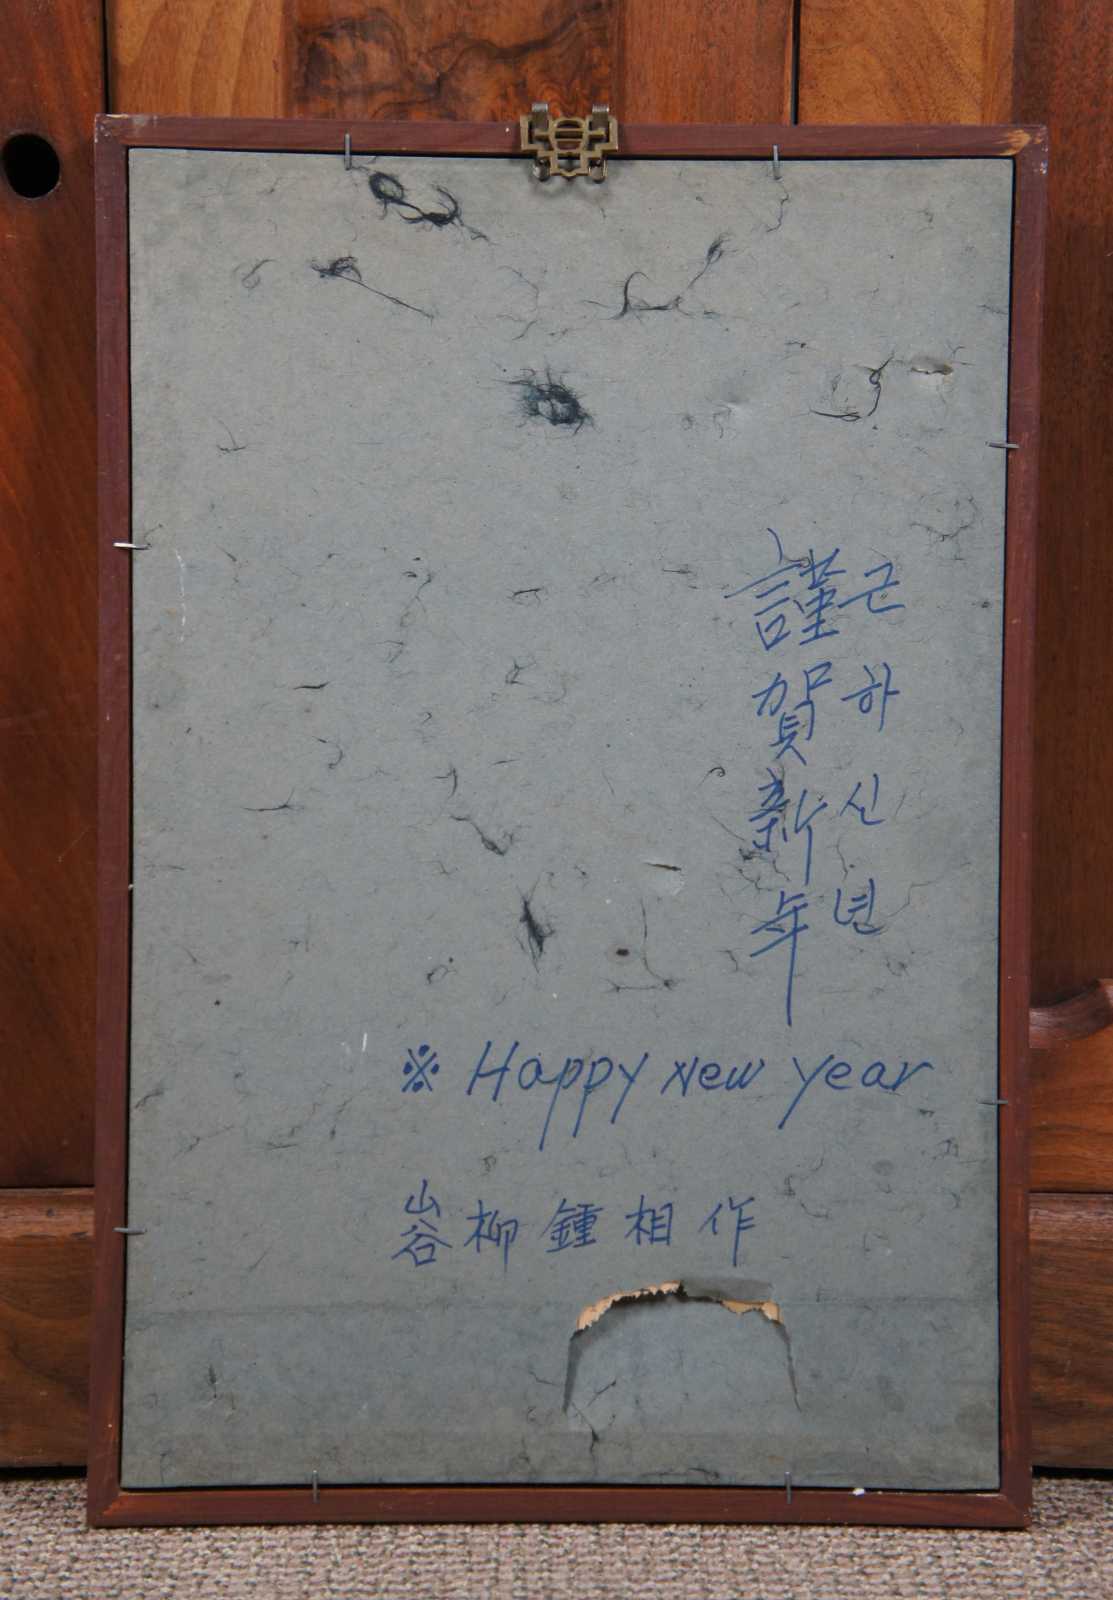 謹賀新年
근하신년
※ Happy New Year
峪柳鍾相作